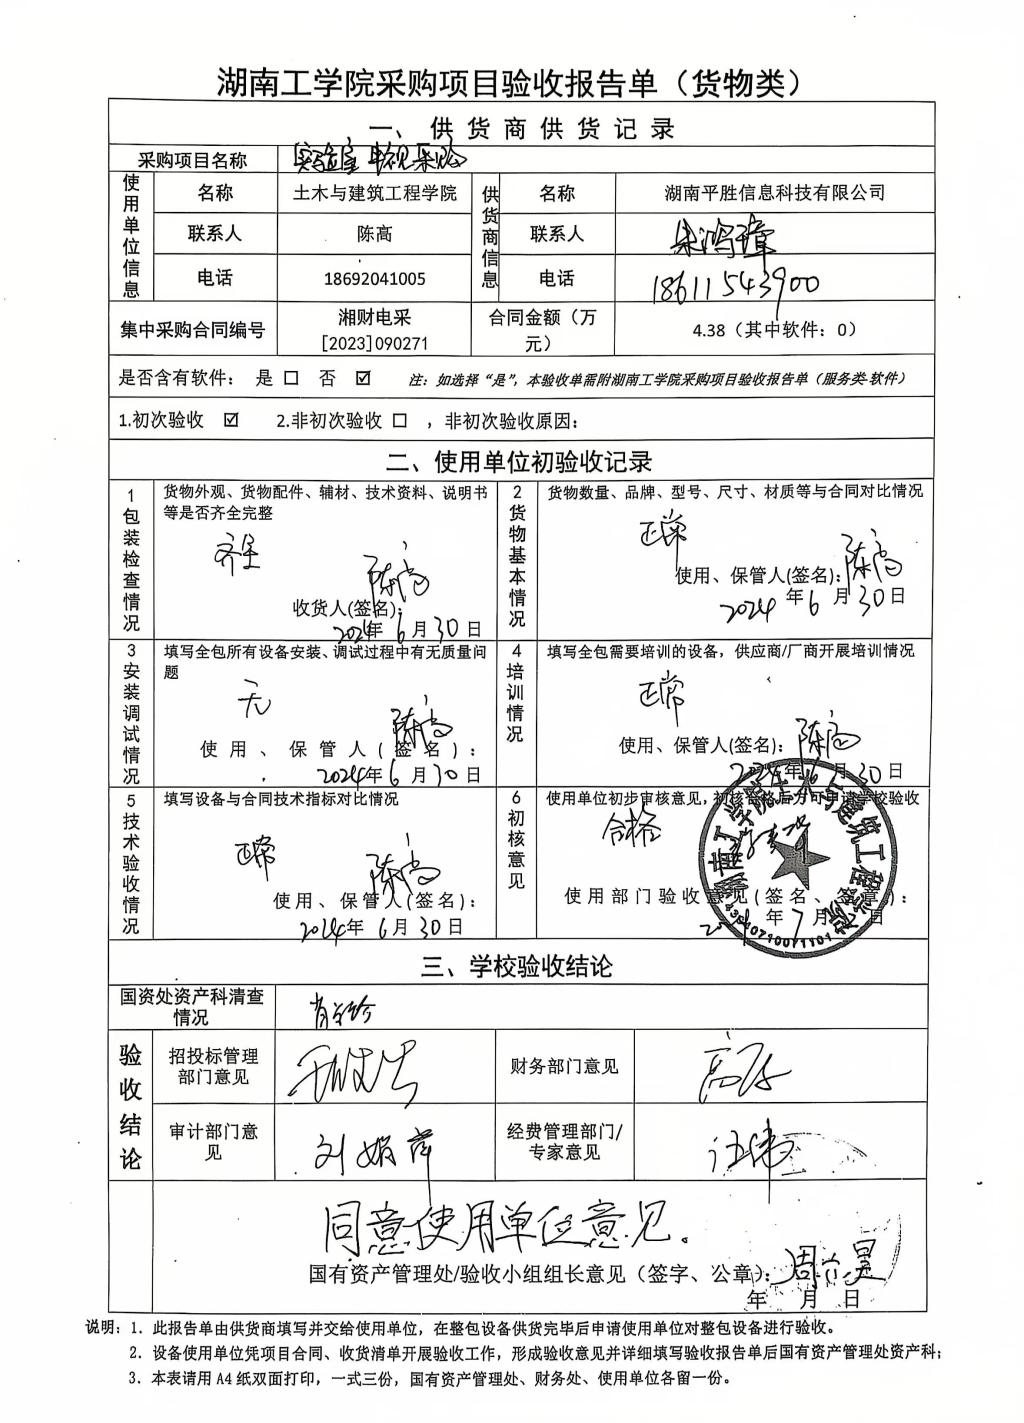 湖南工学院采购项目验收报告单（货物类）
一、供货商供货记录
采购项目名称 实验室电视采购
使用单位信息 名称 土木与建筑工程学院 供货商信息 名称 湖南平胜信息科技有限公司
联系人 陈高 联系人 朱鸿璋
电话 18692041005 电话 18611543900
集中采购合同编号 湘财电采[2023]090271 合同金额（万元） 4.38（其中软件：0）
是否含有软件： 是 □ 否 ☑ 注：如选择“是”，本验收单需附湖南工学院采购项目验收报告单（服务类-软件）
1.初次验收 ☑ 2.非初次验收 □ ，非初次验收原因：
二、使用单位初验收记录
1包装检查情况
货物外观、货物配件、辅材、技术资料、说明书
等是否齐全完整
齐全
陈高
收货人(签名)：
2024年 6月 30日
2货物基本情况
货物数量、品牌、型号、尺寸、材质等与合同对比情况
正常
使用、保管人(签名)：陈高
2024年 6月 30日
3安装调试情况
填写全包所有设备安装、调试过程中有无质量问
题
无
陈高
使用、保管人(签名)：
2024年 6月 30日
4培训情况
填写全包需要培训的设备，供应商/厂商开展培训情况
正常
使用、保管人(签名)：陈高
2024年 6月 30日
5技术验收情况
填写设备与合同技术指标对比情况
正常
陈高
使用、保管人(签名)：
2024年 6月 30日
6初核意见
使用单位初步审核意见，初核合格后方可申请学校验收
合格
湖南工学院土木与建筑工程学院
使用部门验收意见(签名、签章)：
年 7月 日
三、学校验收结论
国资处资产科清查
情况
验收结论
招投标管理
部门意见
财务部门意见
审计部门意
见
刘娟萍
经费管理部门/
专家意见
汪伟
同意使用单位意见。
国有资产管理处/验收小组组长意见（签字、公章）：
年 月 日
说明：1. 此报告单由供货商填写并交给使用单位，在整包设备供货完毕后申请使用单位对整包设备进行验收。
2. 设备使用单位凭项目合同、收货清单开展验收工作，形成验收意见并详细填写验收报告单后国有资产管理处资产科；
3. 本表请用 A4 纸双面打印，一式三份，国有资产管理处、财务处、使用单位各留一份。